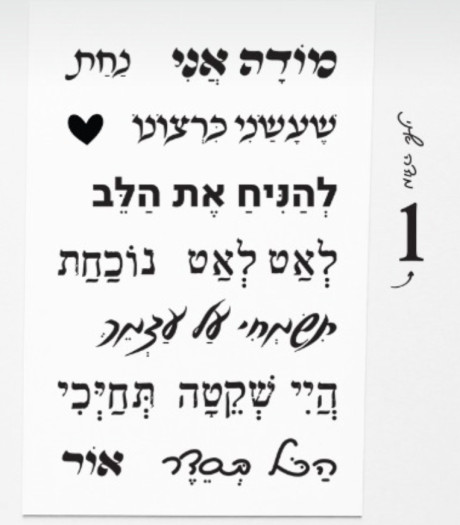 מוֹדָה אֲנִי נַחַת
שֶׁעָשַׂנִי כִּרְצוֹנוֹ
לְהַנִּיחַ אֶת הַלֵּב
לְאַט לְאַט נוֹכַחַת
עַל עַצְמֵךְ
הֲיִי שְׁקֵטָה תְּחַיְּכִי
הַכֹּל בְּסֵדֶר אוֹר
1